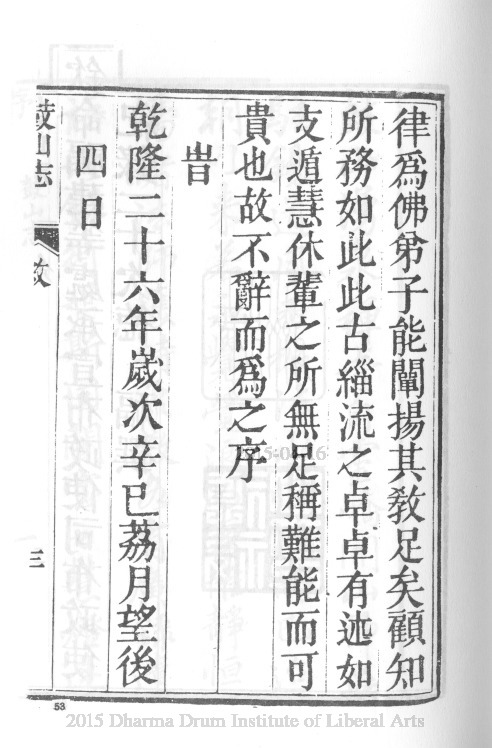 律爲佛弟子能闡揚其敎足矣顧知
所務如此此古緇流之卓卓有迹如
支遁慧休輩之所無足稱難能而可
貴也故不辭而爲之序
旹
乾隆二十六年歲次辛巳荔月望後
四日
鼓山志
三
53
2015 Dharma Drum Institute of Liberal Arts